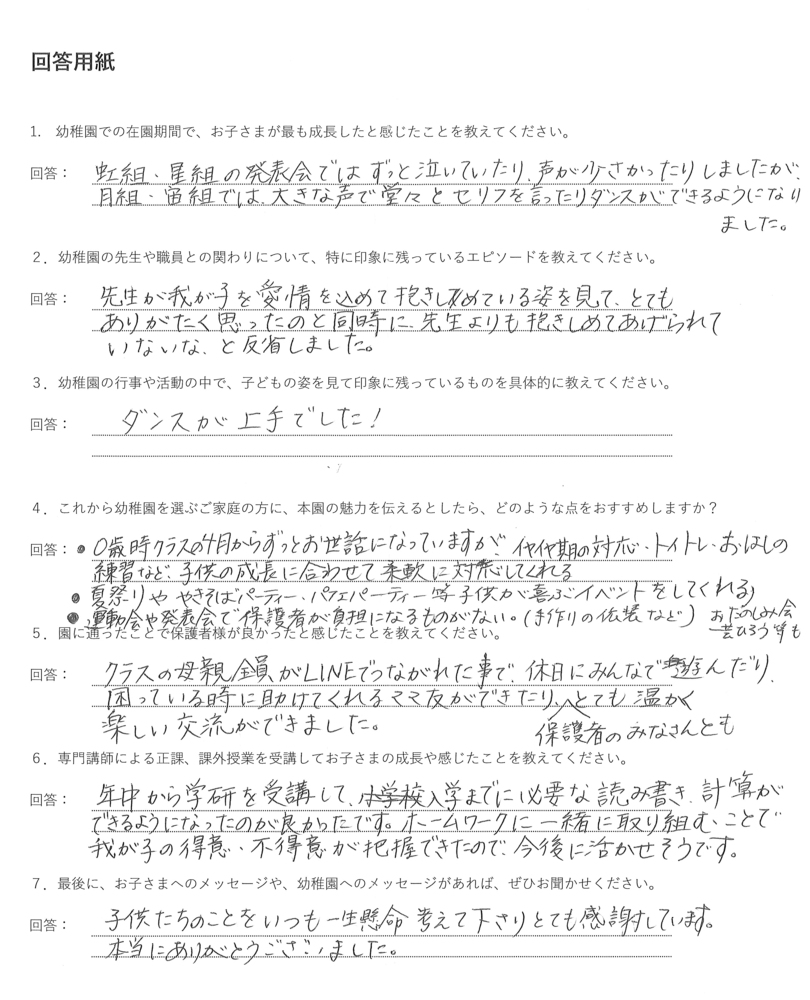 回答用紙
1. 幼稚園での在園期間で、お子さまが最も成長したと感じたことを教えてください。
回答： 虹組・星組の発表会ではずっと泣いていたり、声が小さかったりしましたが、
月組・宙組では、大きな声で堂々とセリフを言ったりダンスができるようになり
ました。
2．幼稚園の先生や職員との関わりについて、特に印象に残っているエピソードを教えてください。
回答： 先生が我が子を愛情を込めて抱きしめている姿を見て、とても
ありがたく思ったのと同時に、先生よりも抱きしめてあげられて
いないな、と反省しました。
3．幼稚園の行事や活動の中で、子どもの姿を見て印象に残っているものを具体的に教えてください。
回答： ダンスが上手でした！
4．これから幼稚園を選ぶご家庭の方に、本園の魅力を伝えるとしたら、どのような点をおすすめしますか？
回答： ●0歳時クラスの4月からずっとお世話になっていますが、イヤイヤ期の対応・トイトレ・おはしの
練習など、子供の成長に合わせて柔軟に対応してくれる
●夏祭りややきそばパーティー、パフェパーティー等子供が喜ぶイベントをしてくれる
●運動会や発表会で保護者が負担になるものがない。（手作りの衣装など） おたのしみ会
芸ひろう等も
5．園に通ったことで保護者様が良かったと感じたことを教えてください。
回答： クラスの母親全員がLINEでつながれた事で、休日にみんなで遊んだり、
困っている時に助けてくれるママ友ができたり、とても温かく
楽しい交流ができました。
保護者のみなさんとも
6．専門講師による正課、課外授業を受講してお子さまの成長や感じたことを教えてください。
回答： 年中から学研を受講して、小学校入学までに必要な読み書き、計算が
できるようになったのが良かったです。ホームワークに一緒に取り組むことで
我が子の得意・不得意が把握できたので、今後に活かせそうです。
7．最後に、お子さまへのメッセージや、幼稚園へのメッセージがあれば、ぜひお聞かせください。
回答： 子供たちのことをいつも一生懸命考えて下さりとても感謝しています。
本当にありがとうございました。